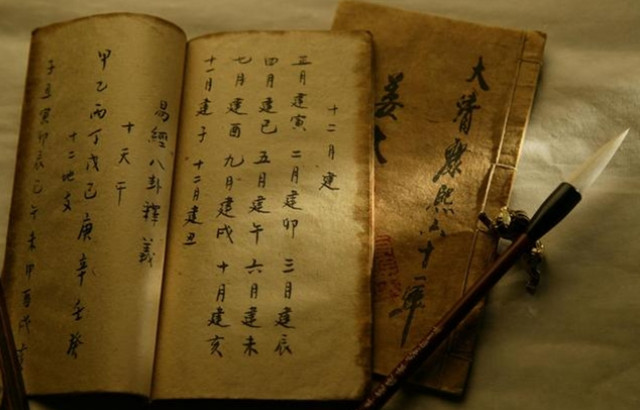 十二月建
正月建寅 二月建卯 三月建辰
四月建巳 五月建午 六月建未
七月建酉 九月建戌 十月建亥
十一月建子 十二月建丑
易經八卦釋義
十天干
甲乙丙丁戊己庚辛壬癸
十二地支
子丑寅卯辰巳午未申酉戌亥
大清康熙六十一年
姜